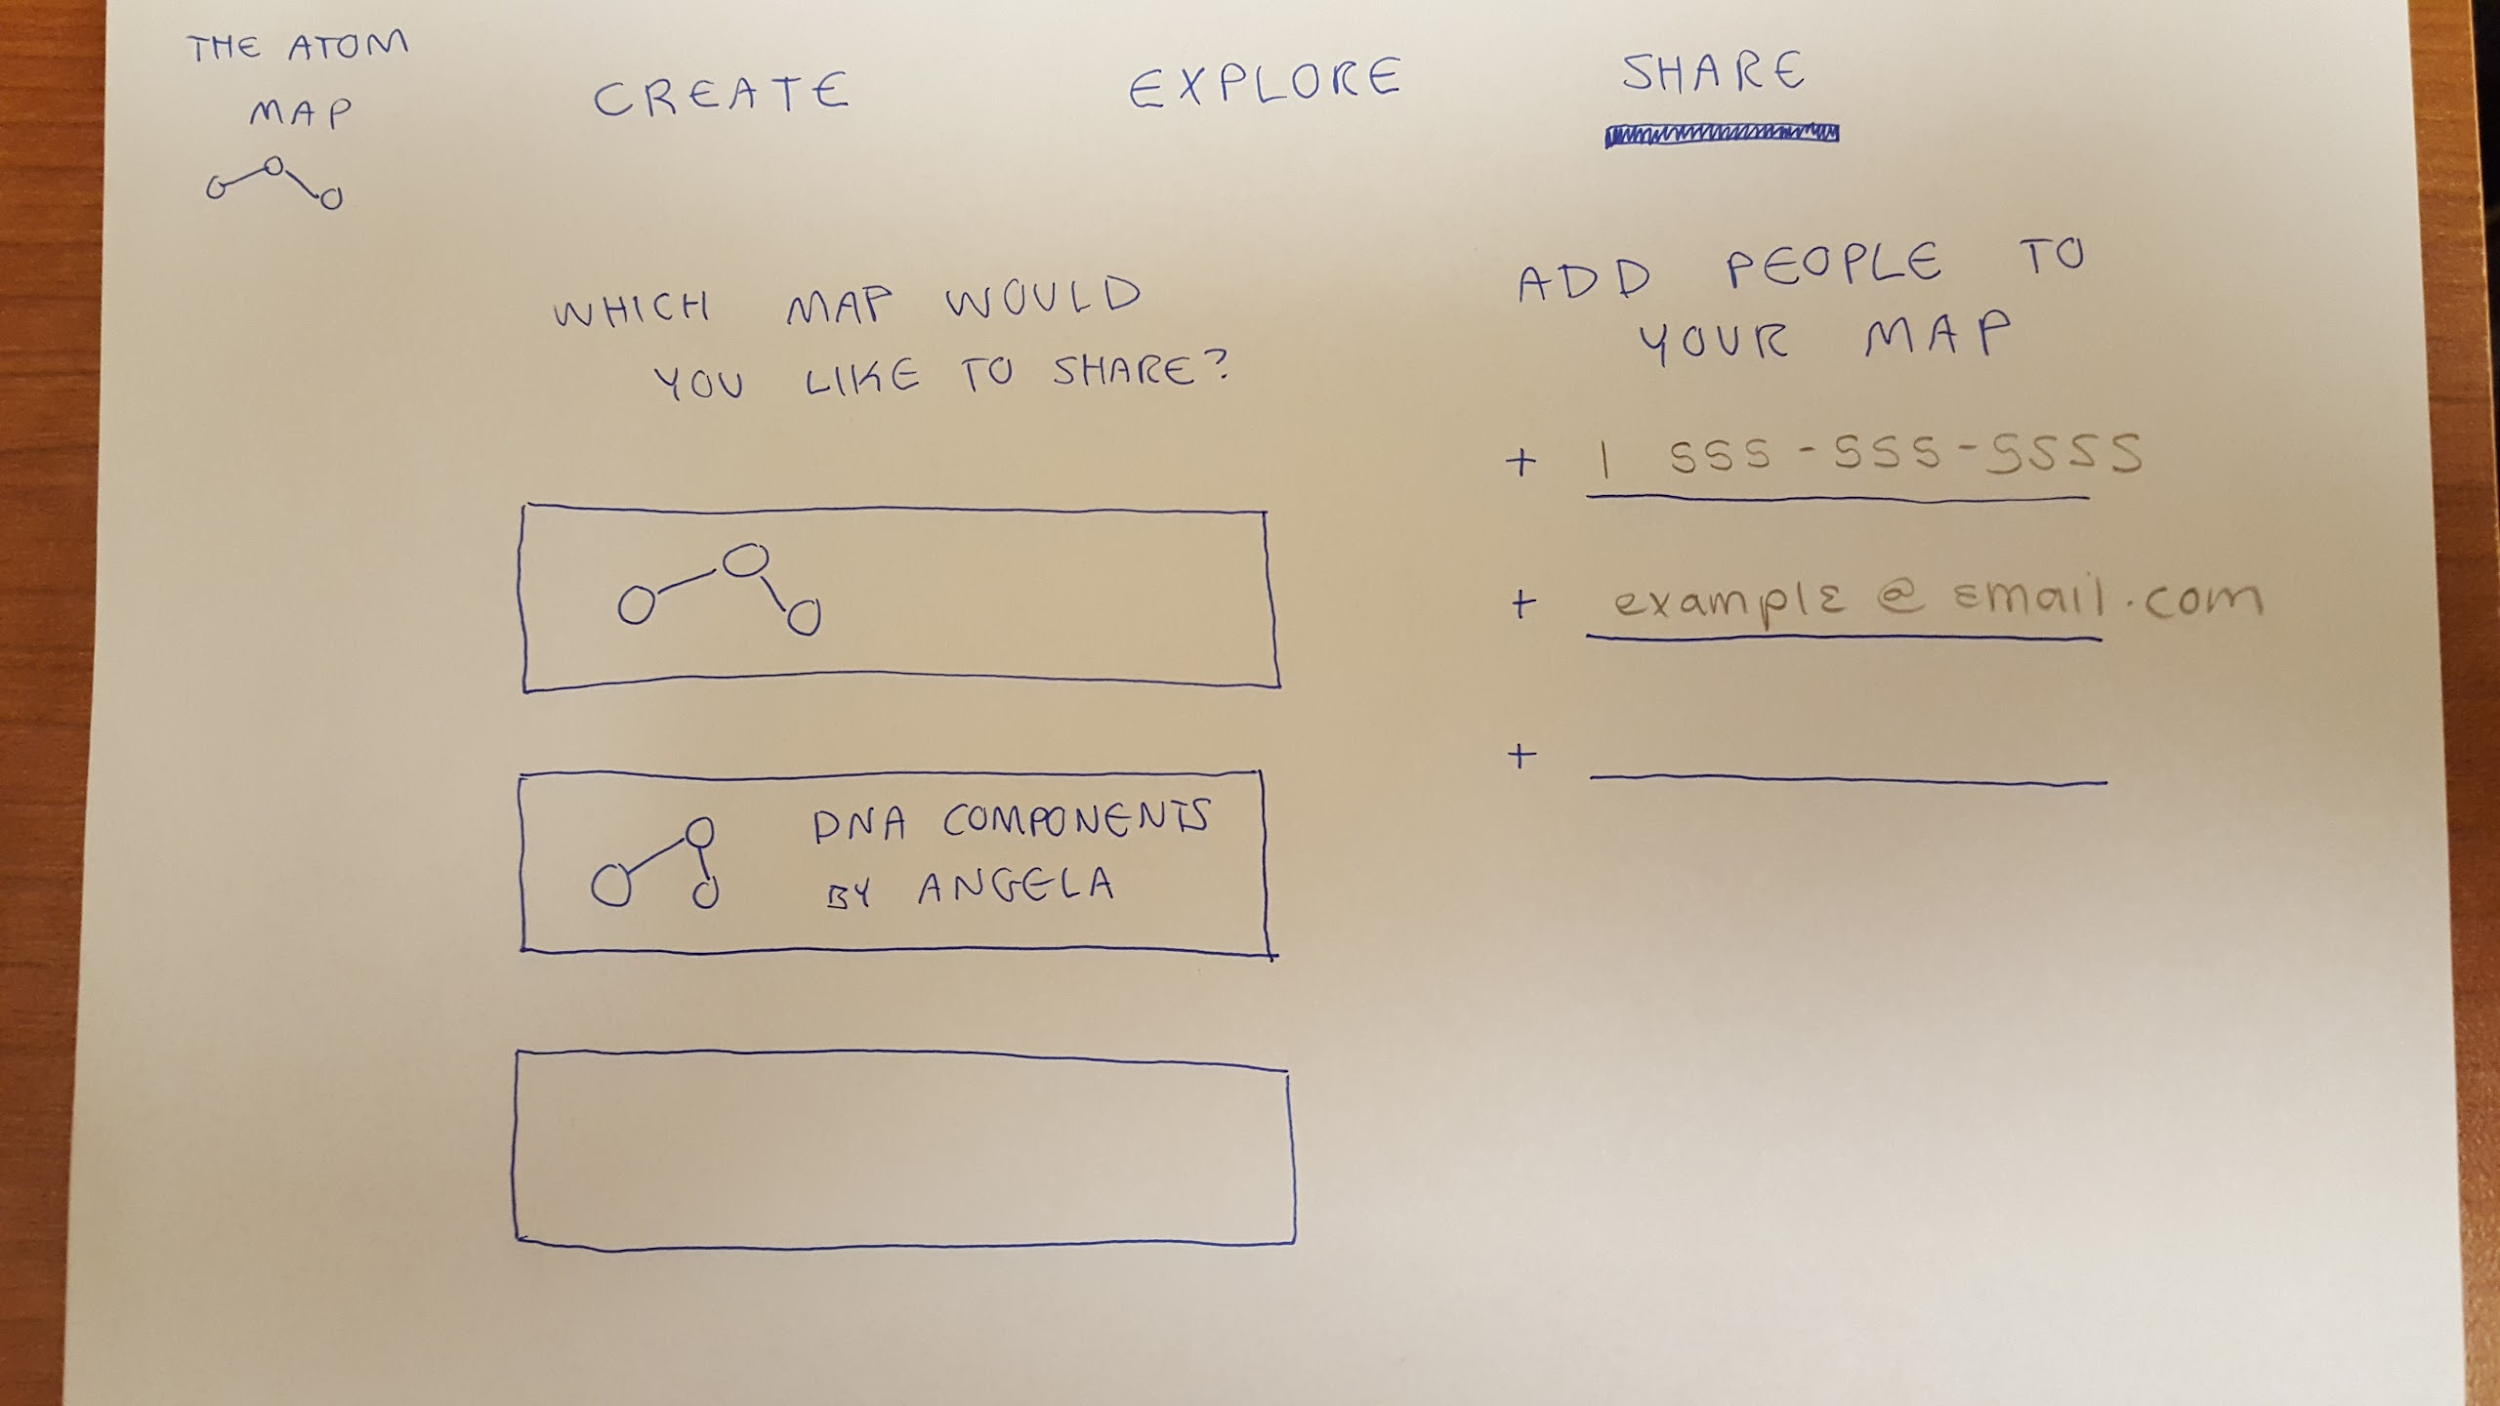 THE ATOM
MAP
CREATE
EXPLORE
SHARE
WHICH MAP WOULD
YOU LIKE TO SHARE?
DNA COMPONENTS
BY ANGELA
ADD PEOPLE TO
YOUR MAP
+ 1 555-555-5555
+ example@email.com
+